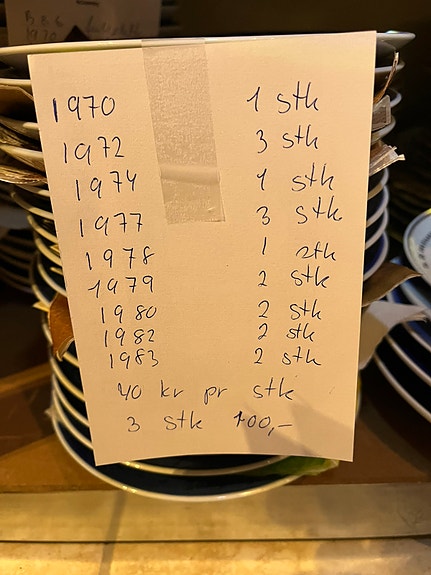 1970 1 stk
1972 3 stk
1974 1 stk
1977 3 stk
1978 1 stk
1979 2 stk
1980 2 stk
1982 2 stk
1983 2 stk
40 kr pr stk
3 stk 100,-